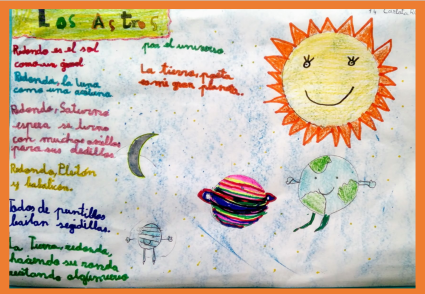 Los Astros
Redondo es el sol
como un gool
Redonda, la luna
como una aceituna
Redondo, Saturno
espera su turno
con muchos anillos
para sus dedillos
Redondo, Plutón
y
Todos de puntillas
bailan seguidillas.
La Tierra, redonda,
haciendo su ronda
recitando algún verso
por el universo.
La tierra, poeta
es mi gran planeta.